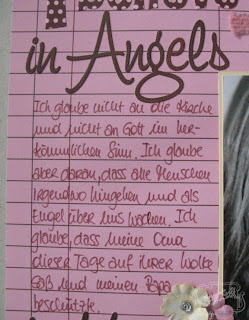 in Angels
Ich glaube nicht an die Kirche
und nicht an Gott im her-
kömmlichen Sinn. Ich glaube
aber daran, dass alle Menschen
irgendwo hingehen und als
Engel über uns wachen. Ich
glaube, dass meine Oma
dieser Tage auf ihrer Wolke
saß und meinen Papa
beschützte.